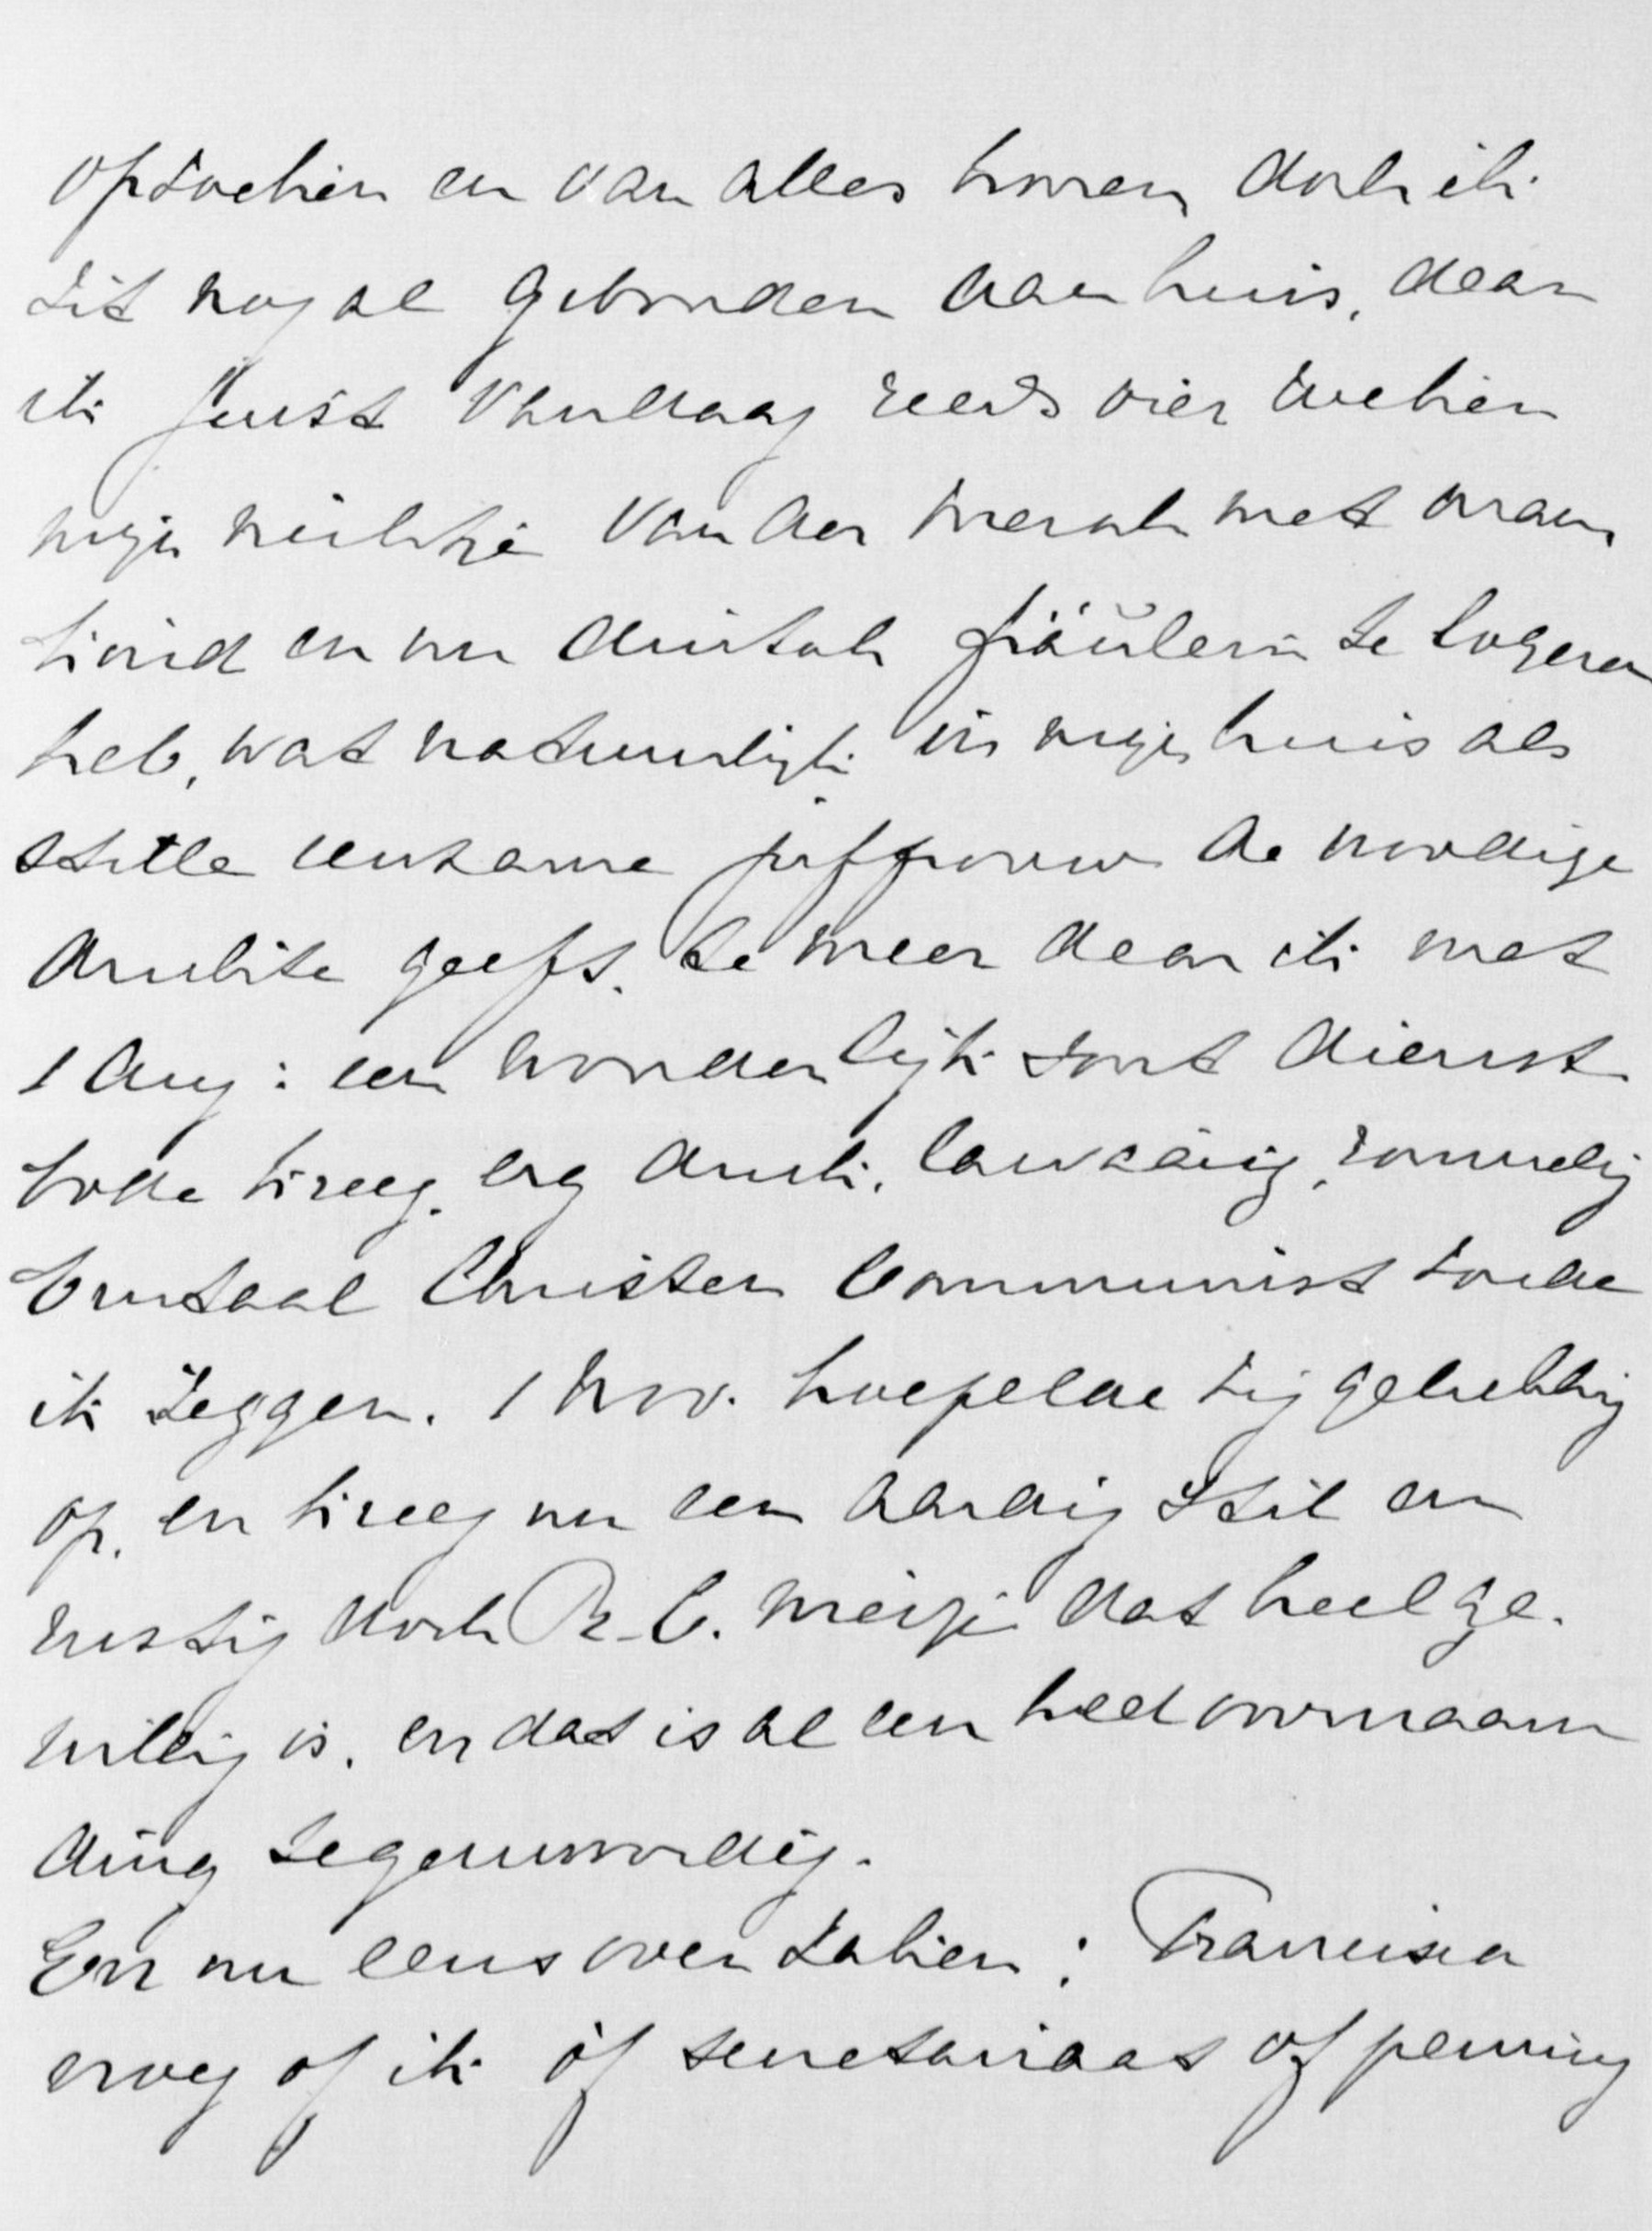 opzoeken en van alles horen, doch ik
zit nog al gebonden aan huis, daar
ik juist vandaag reeds vier weken
mijn nichtje van der met vrouw
kind en nu duitsch fräulein te logeren
heb, wat natuurlijk in mijn huis als
stille eenzame juffrouw de noodige
drukte geeft. te meer daar ik met
1 Aug: een wonderlijk soort dienst
bode kreeg. erg druk, lawaaiig, rommelig
brutaal Christen Communist zoude
ik zeggen. 1 Nov. hoepelde zij gelukkig
op. en kreeg nu een aardig stil en
rustig doch R-C. meisje dat heel ge-
willig is. en dat is al een heel voornaam
ding tegenwoordig.
En nu eens over zaken: Francisca
vroeg of ik óf secretariaat óf penning